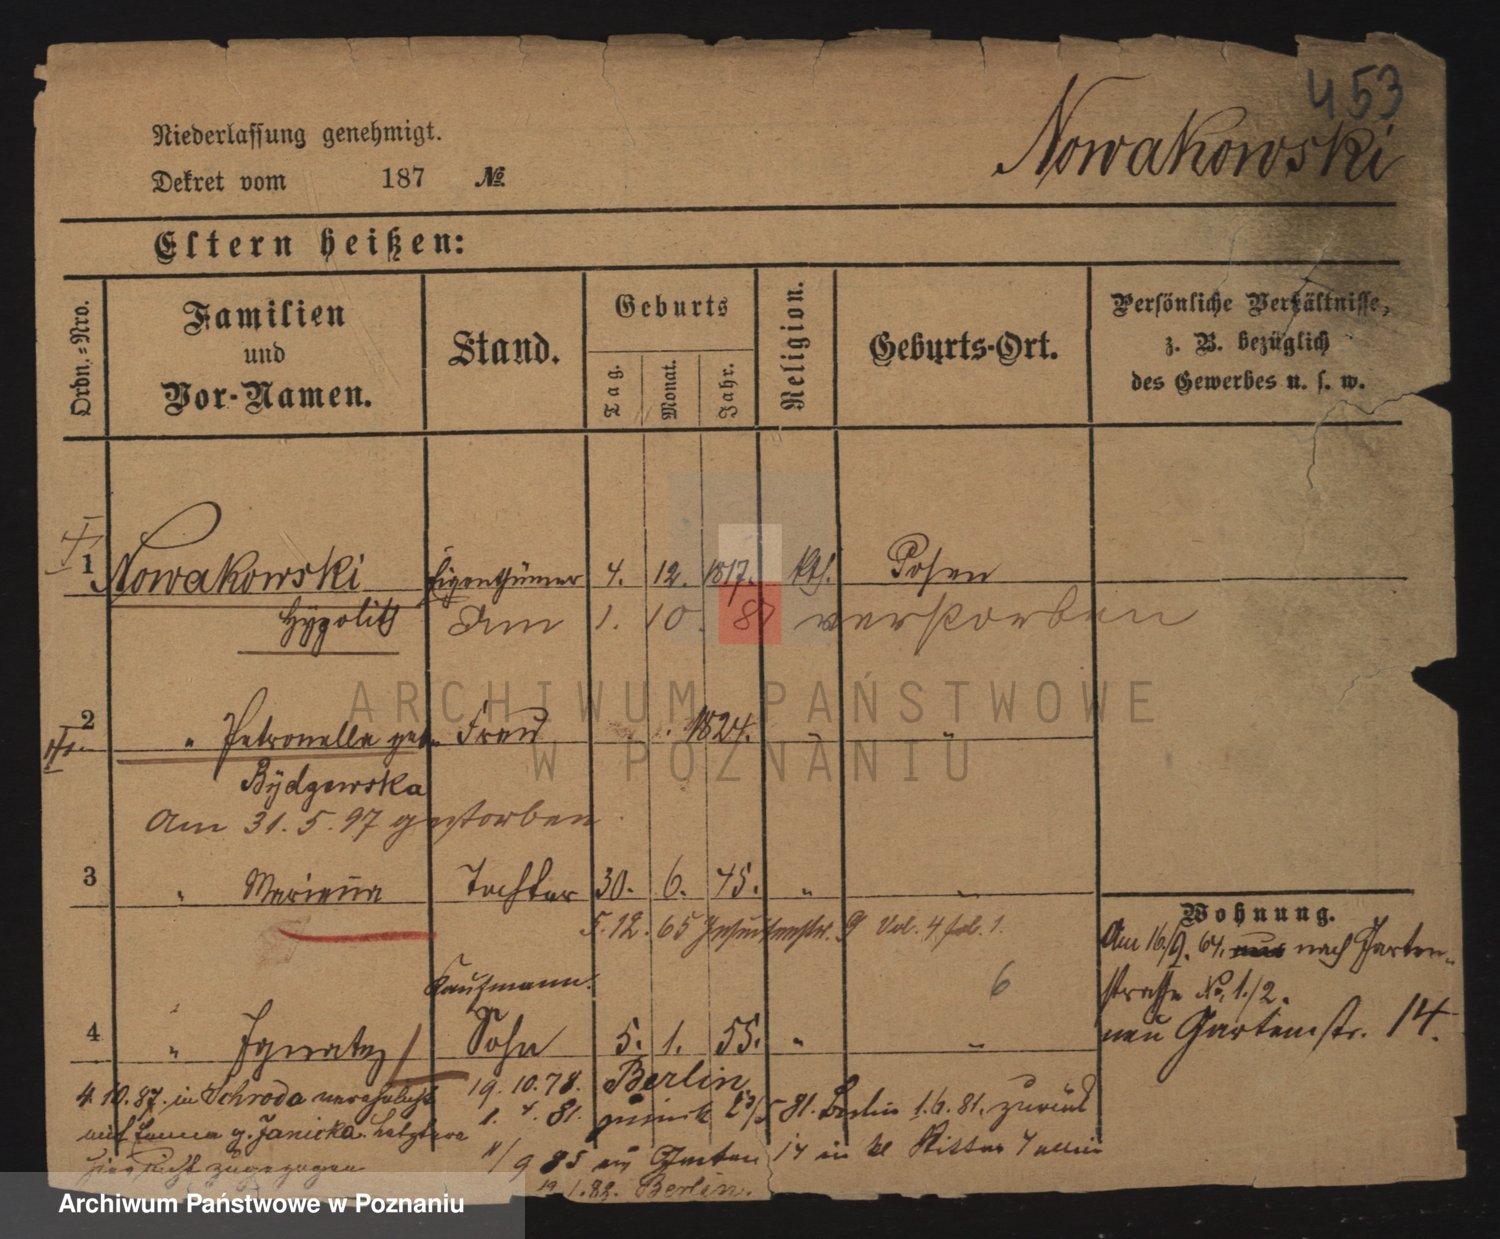 453
Niederlassung genehmigt.
Nowakowski
Dekret vom 187 №
Eltern heißen:
Ordn.-Nro.
Familien
und
Vor-Namen.
Stand.
Geburts
Tag.
Monat.
Jahr.
Religion.
Geburts-Ort.
Persönliche Verhältnisse,
z. B. bezüglich
des Gewerbes u. s. w.
1 Nowakowski Eigenthümer 4. 12. 1817. kth. Posen
Hÿpolit Am 1. 10. 87 verstorben
ARCHIWUM PAŃSTWOWE
W POZNANIU
2 " Petronella geb. Frau 1824. " "
Bÿdgowska
Am 31. 5. 97 gestorben
3 " Marianna Tochter 30. 6. 45. " "
Wohnung.
5. 12. 65 Jesuitenstr. 9 Vol. 4 fol. 1.
Am 16/9. 64. nach Garten-
Kaufmann. 6
strasse No. 1./2.
4 " Ignatz Sohn 5. 1. 55. " "
neu Gartenstr. 14.
19. 10. 78. Berlin.
4. 10. 87. in Schroda verehelicht
1. 4. 81. zurück 23/5 81. Berlin 1. 6. 81. zurück
mit g. Janicka. Letztere
11/9 85 Garten 14 in kl Ritter
hier nicht zugezogen
19. 1. 82. Berlin.
Archiwum Państwowe w Poznaniu